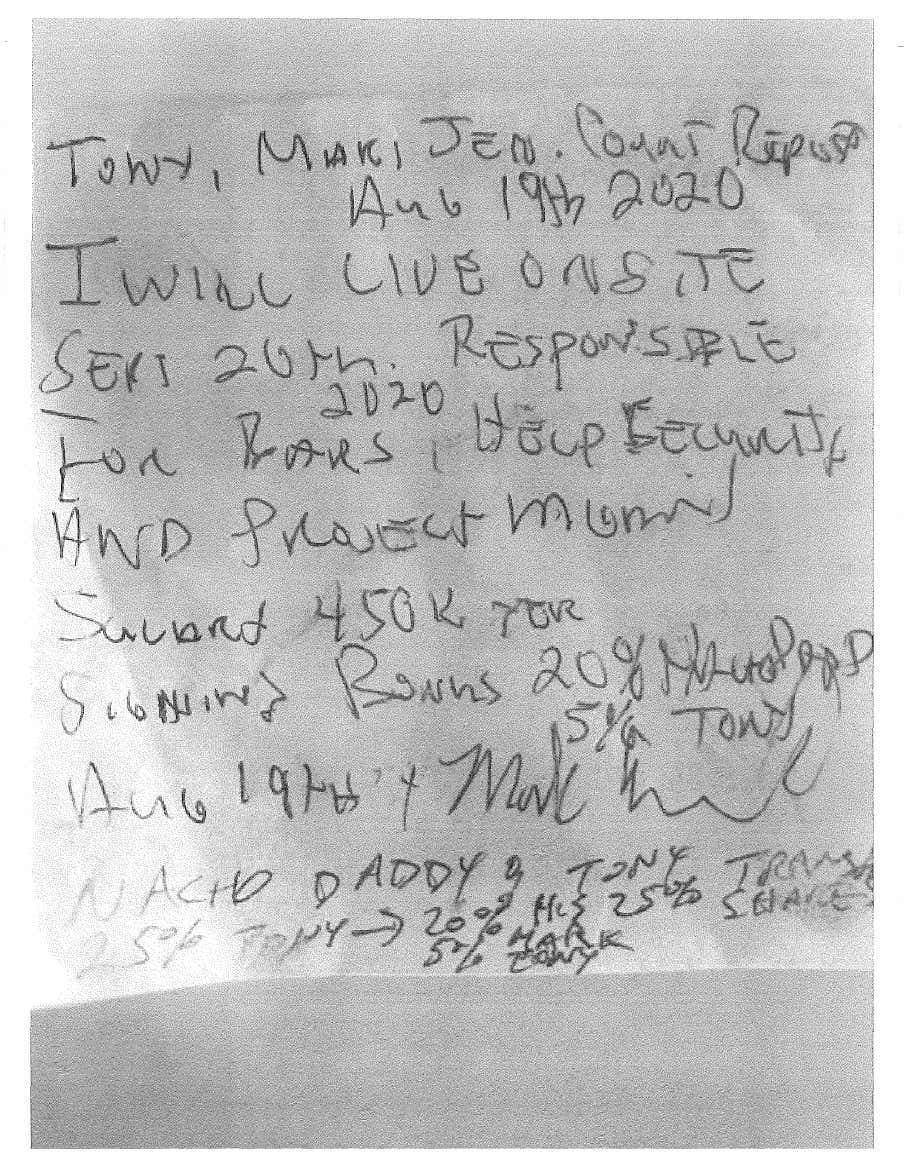 TONY, MARK, JEN. Count Repust
Aug 19th 2020
I WILL LIVE ONSITE
SEPT 20th. RESPONSIBLE
2020
For BARS, HELP SECURITY
AND PROJECT
450K PER
SIGNING BONUS 20%
5% TONY
Aug 19th Mark
NACHO DADDY & TONY TRANS
HIS 25% SHARES
25% TONY → 20% MARK
5% TONY